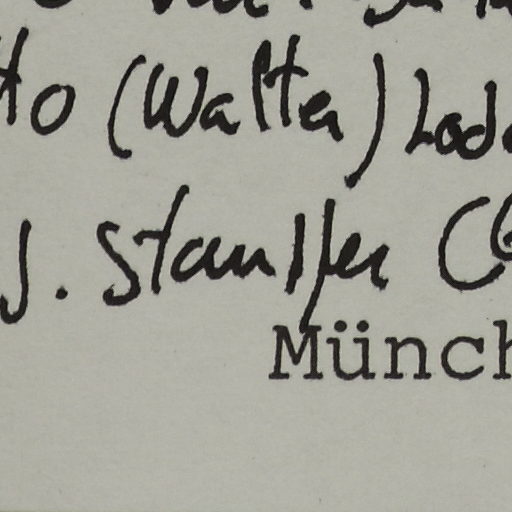 to (Walter) Lod
J. Stauffer (G
Münch